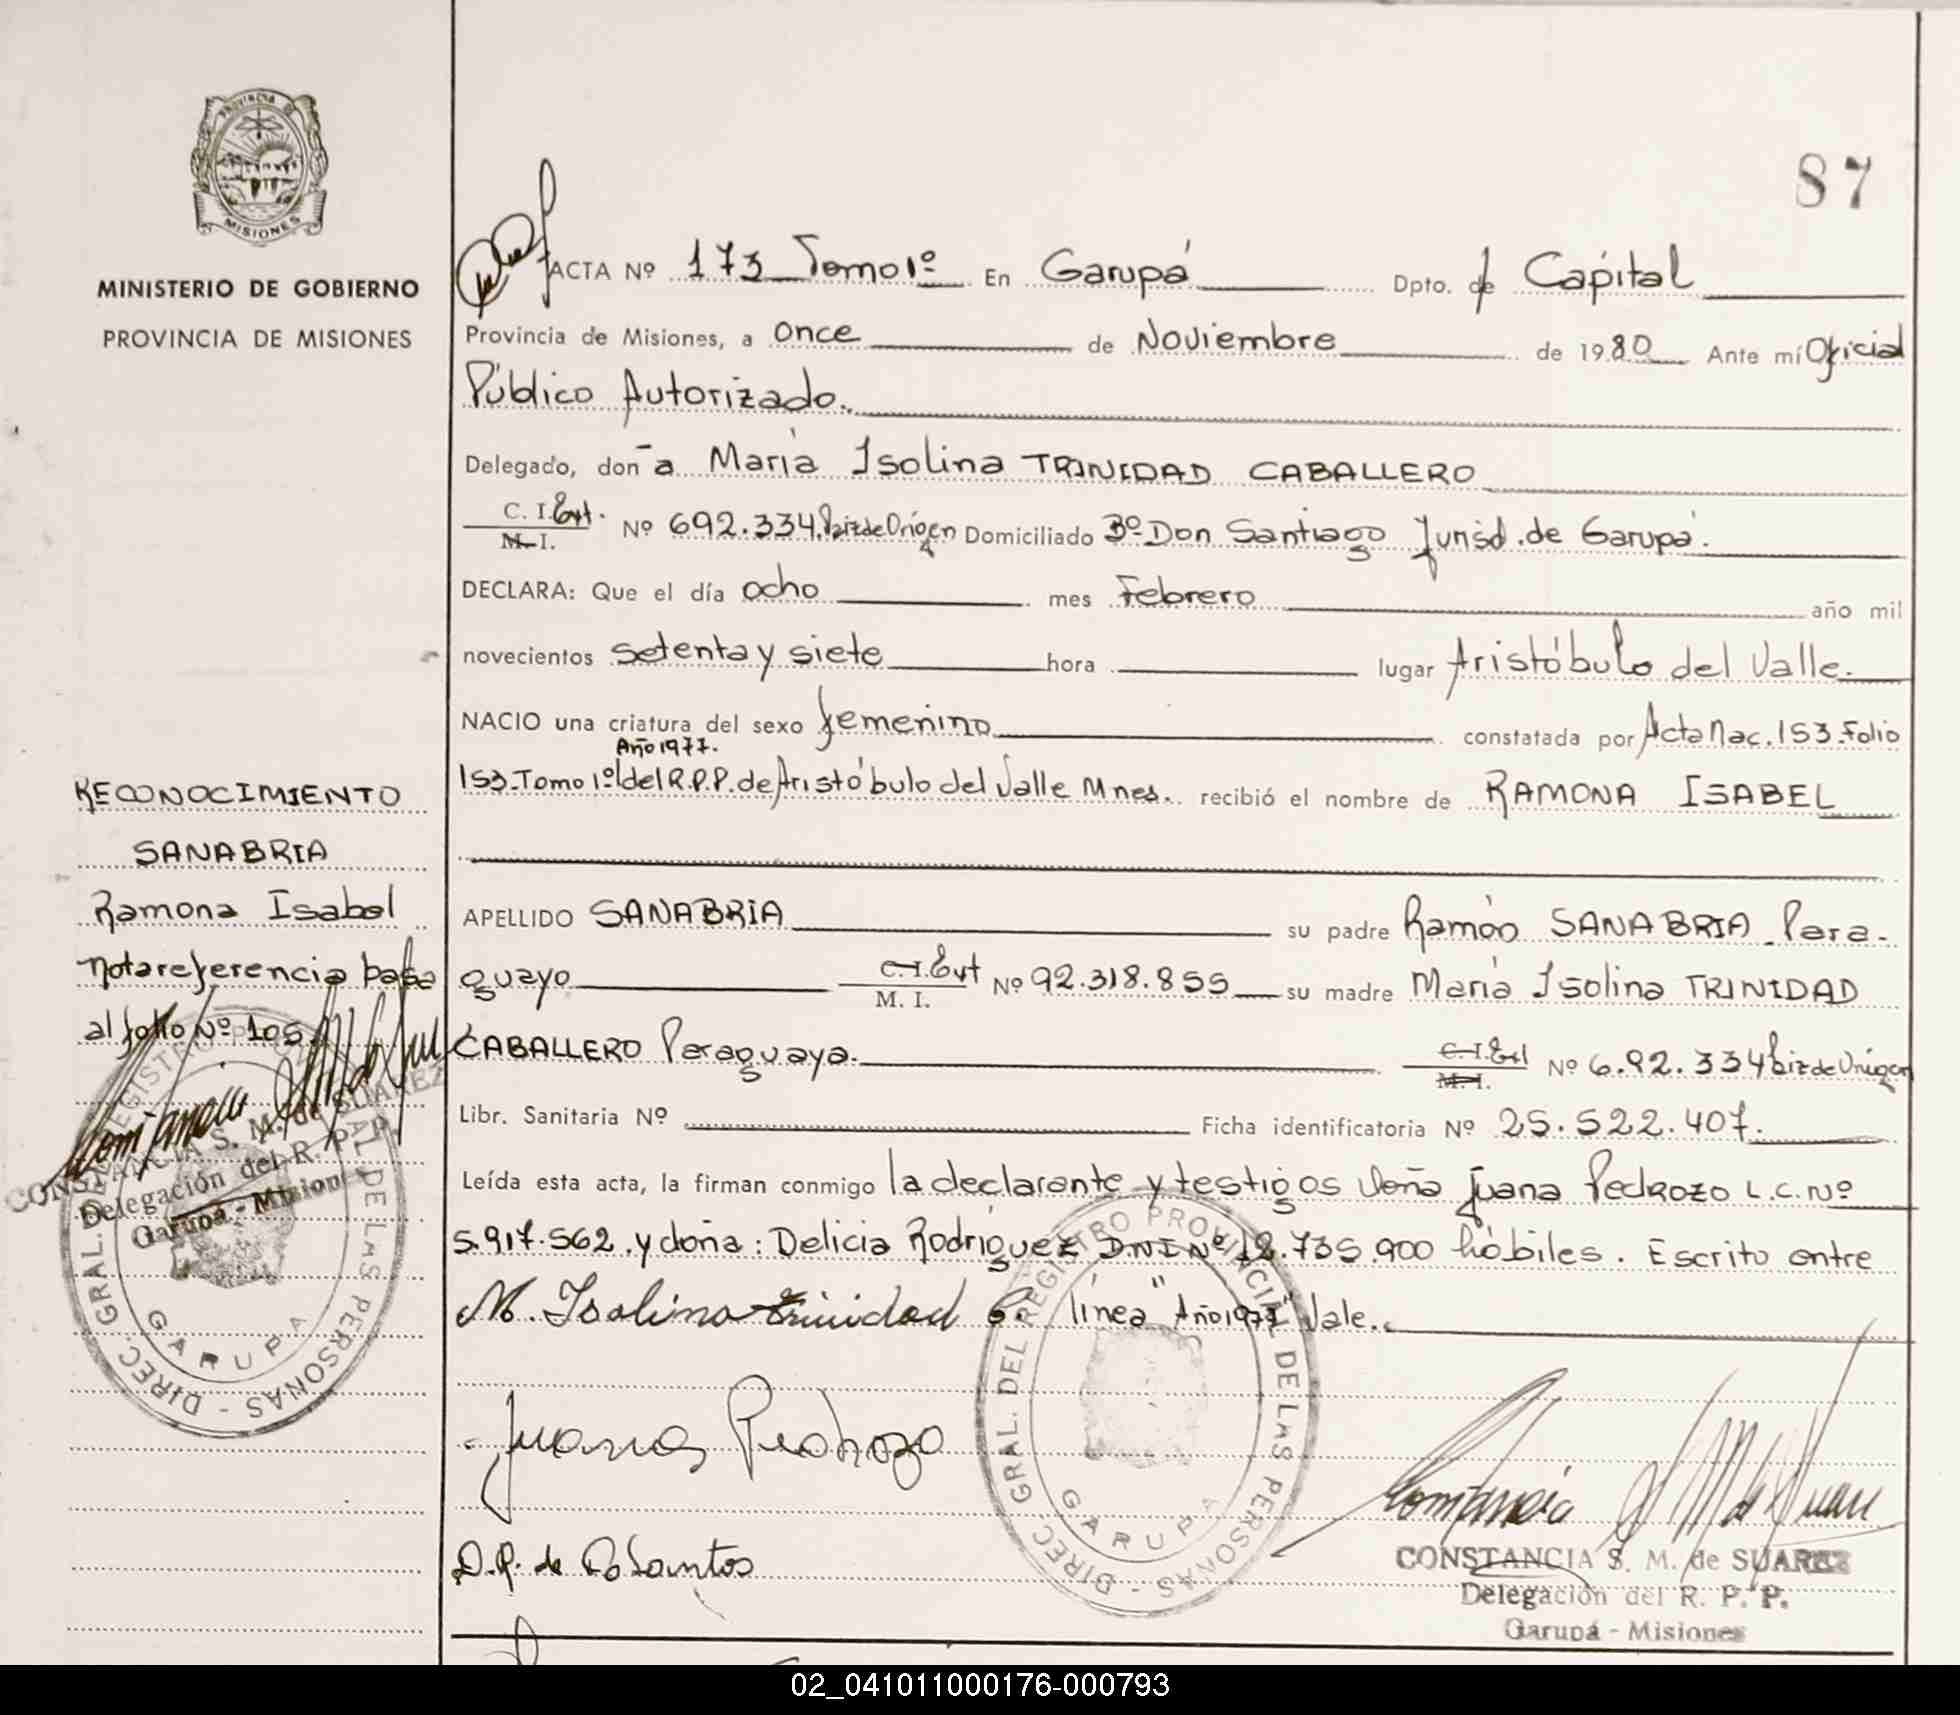 87
PROVINCIA DE
MISIONES
MINISTERIO DE GOBIERNO
PROVINCIA DE MISIONES
ACTA Nº 173 Tomo 1º En Garupá Dpto. de Capital
Provincia de Misiones, a once de Noviembre de 1980 Ante mí Oficial
Público Autorizado.
Delegado, don a María Isolina TRINIDAD CABALLERO
C. I. Ext. M. I. Nº 692.334. Paiz de Orígen Domiciliado Bº Don Santiago Jurisd. de Garupá.
DECLARA: Que el día ocho mes Febrero año mil
novecientos setenta y siete hora lugar Aristóbulo del Valle.
NACIO una criatura del sexo femenino constatada por Acta Nac. 153. Folio
Año 1977.
153. Tomo 1º del R.P.P. de Aristóbulo del Valle Mnes. recibió el nombre de RAMONA ISABEL
APELLIDO SANABRIA su padre Ramón SANABRIA Para-
guayo C.I. Ext M. I. Nº 92.318.855 su madre María Isolina TRINIDAD
CABALLERO Paraguaya. C.I. Ext M.I. Nº 6.92.334 Paiz de Orígen
Libr. Sanitaria Nº Ficha identificatoria Nº 25.522.407.
Leída esta acta, la firman conmigo la declarante y testigos doña Juana Pedrozo L.C. Nº
5.917.562. y doña: Delicia Rodríguez D.N.I Nº 12.735.900 hábiles. Escrito entre
M. Isolina trinidad C. línea "Año 1977" Vale.
Juana Pedrozo
D.R. de Dos Santos
Constancia S M de Suarez
CONSTANCIA S. M. de SUAREZ
Delegación del R. P. P.
Garupá - Misiones
DIREC. GRAL. DEL REGISTRO PROVINCIAL DE LAS PERSONAS -
GARUPA
RECONOCIMIENTO
SANABRIA
Ramona Isabel
Nota referencia pasa
al folio Nº 105
CONSTANCIA S. M. de SUAREZ
Delegación del R. P. P.
Garupá - Misiones
DIREC. GRAL. DEL REGISTRO PROVINCIAL DE LAS PERSONAS -
GARUPA
02_041011000176-000793